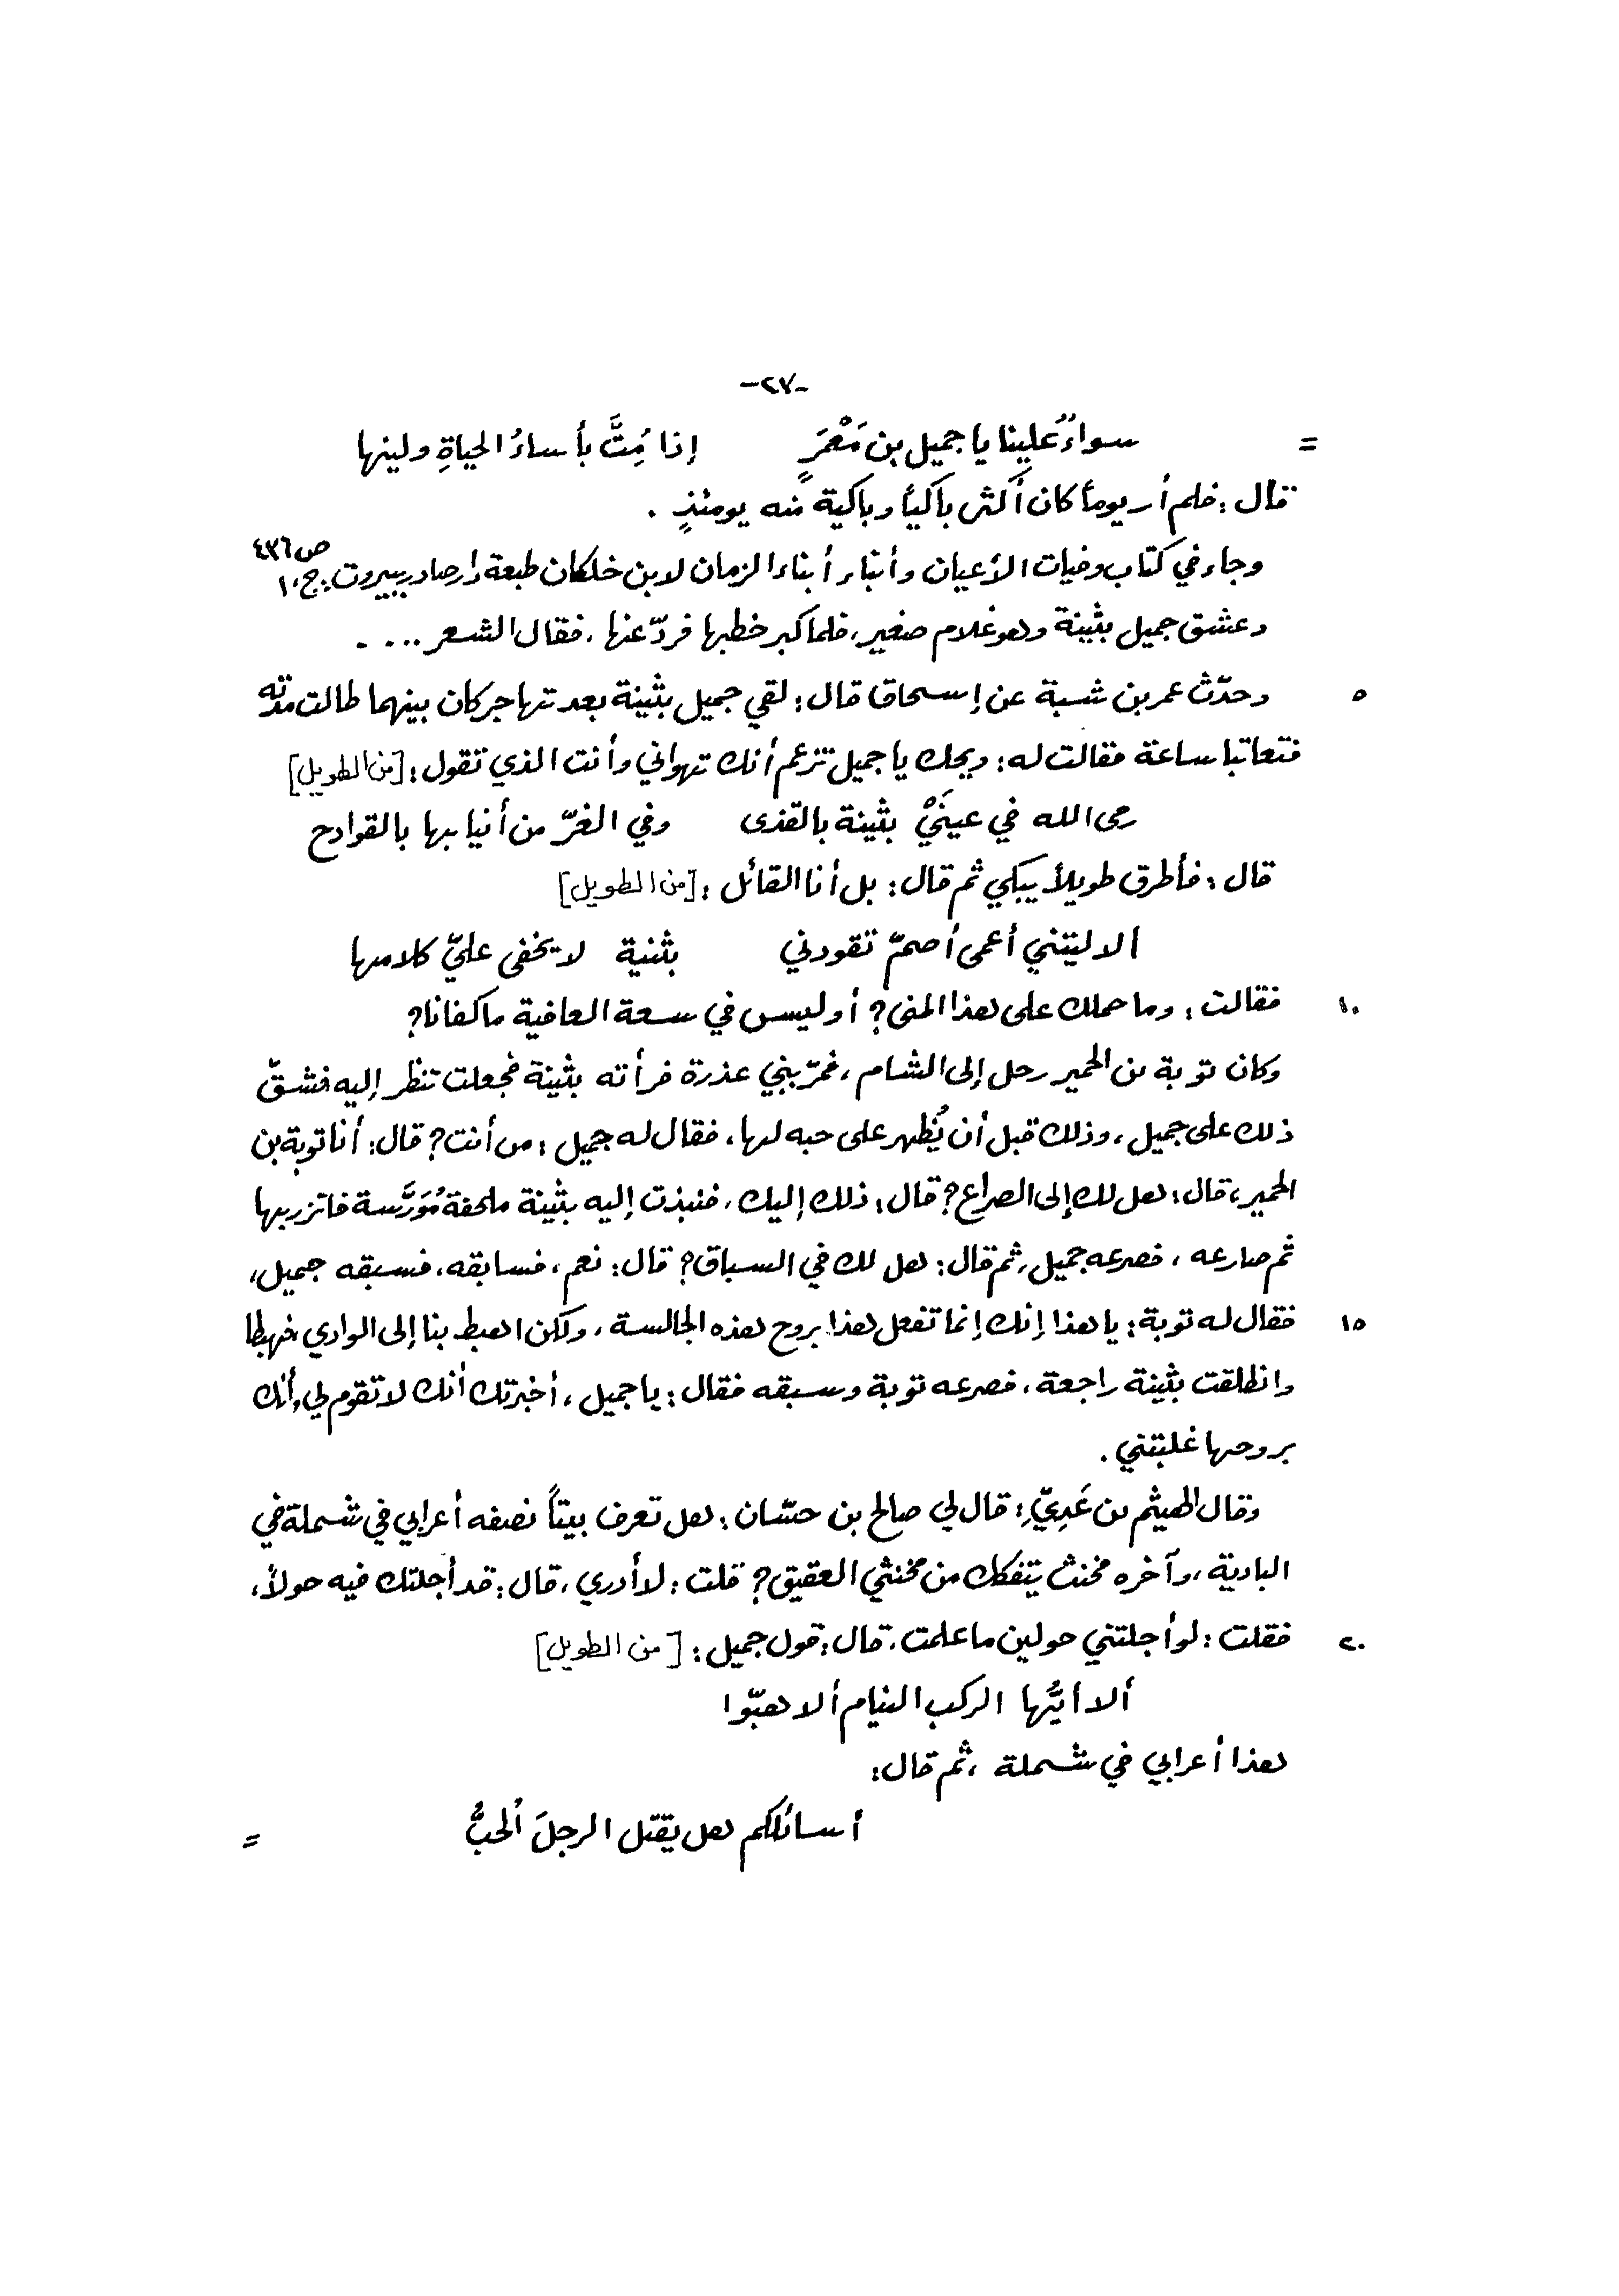 -٢٧-
= سواءٌ علينا يا جميل بن مَعْمَرٍ إذا مُِتَّ بأساءُ الحياةِ ولينها
قال : فلم أر يوماً كان أكثر باكياً وباكية منه يومئذٍ .
وجاء في كتاب وفيات الأعيان وأنباء أبناء الزمان لابن خلكان طبعة دار صادر ببيروت . ج ، ١ ص ٤٣٦
وعشق جميل بثينة وهو غلام صغير ، فلما كبر خطبها فردّ عنها ، فقال الشعر ....
٥ وحدّث عمر بن شبة عن إسحاق قال : لقي جميل بثينة بعد تهاجر كان بينهما طالت مدّته
فتعاتبا ساعة فقالت له : ويحك يا جميل تزعم أنك تهواني وأنت الذي تقول : [من الطويل]
رمى الله في عينَيْ بثينة بالقذى وفي الغرّ من أنيابها بالقوادح
قال : فأطرق طويلاً يبكي ثم قال : بل أنا القائل : [من الطويل]
ألا ليتني أعمى أصمّ تقودني بثنية لا يخفى عليّ كلامها
١٠ فقالت : وما حملك على هذا المنى ؟ أوليس في سعة العافية ما كفانا ؟
وكان توبة بن الحمير رحل إلى الشام ، فمرّ ببني عذرة فرأته بثينة فجعلت تنظر إليه فشقّ
ذلك على جميل ، وذلك قبل أن يُظهر على حبه لها ، فقال له جميل : من أنت ؟ قال : أنا توبة بن
الحمير ، قال : هل لك إلى الصراع ؟ قال : ذلك إليك ، فنبذت إليه بثينة ملحفة مُوَرَّسة فاتزر بها
ثم صارعه ، فصرعه جميل ، ثم قال : هل لك في السباق ؟ قال : نعم ، فسابقه ، فسبقه جميل ،
١٥ فقال له توبة : يا هذا إنك إنما تفعل هذا بروح هذه الجالسة ، ولكن اهبط بنا إلى الوادي فهبطا
وانطلقت بثينة راجعة ، فصرعه توبة وسبقه فقال : يا جميل ، أخبرتك أنك لا تقوم لي وأنك
بروحها غلبتني .
وقال الهيثم بن عَدِيٍّ : قال لي صالح بن حسّان : هل تعرف بيتاً نصفه أعرابي في شملة في
البادية ، وآخره مخنث يتفكك من مخنثي العقيق ؟ قلت : لا أدري ، قال : قد أجلتك فيه حولاً ،
٢٠ فقلت : لو أجلتني حولين ما علمت ، قال : قول جميل : [من الطويل]
ألا أيُّها الركب النيام ألا هبّوا
هذا أعرابي في شملة ، ثم قال :
أسائلكم هل يقتل الرجلَ الحبُّ =